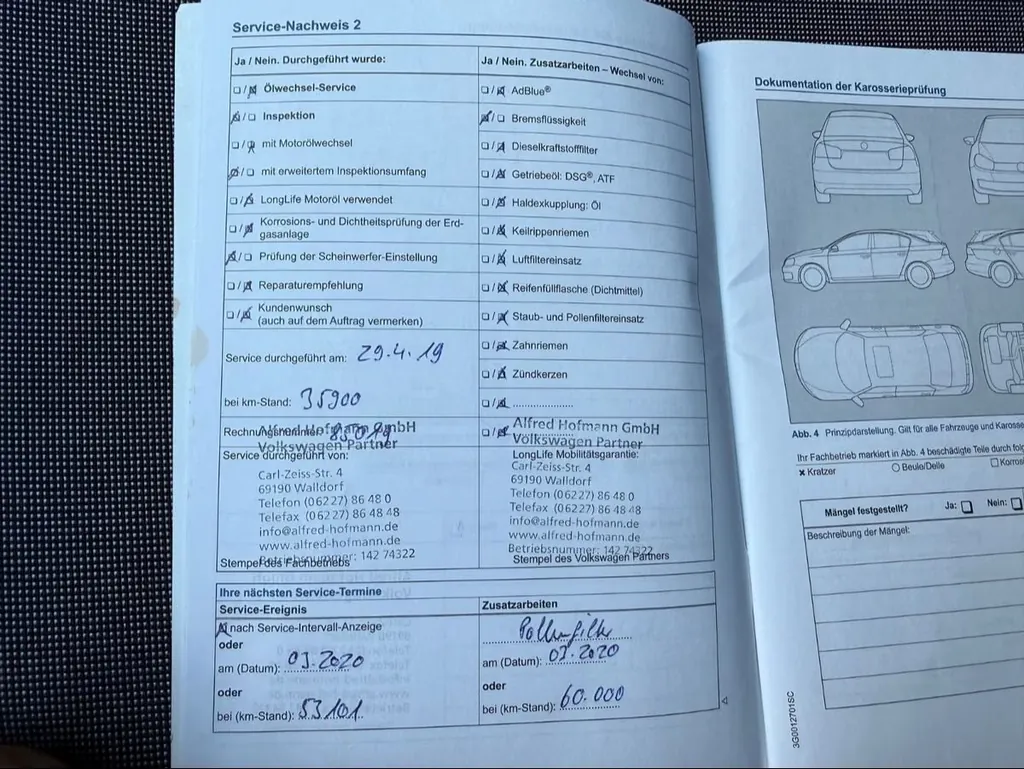 Service-Nachweis 2
Ja / Nein. Durchgeführt wurde:
Ölwechsel-Service
Inspektion
mit Motorölwechsel
mit erweitertem Inspektionsumfang
LongLife Motoröl verwendet
Korrosions- und Dichtheitsprüfung der Erd-
gasanlage
Prüfung der Scheinwerfer-Einstellung
Reparaturempfehlung
Kundenwunsch
(auch auf dem Auftrag vermerken)
Service durchgeführt am: 29.4.19
bei km-Stand: 35900
Alfred Hofmann GmbH
Volkswagen Partner
Service durchgeführt von:
Carl-Zeiss-Str. 4
69190 Walldorf
Telefon (06227) 86 48 0
Telefax (06227) 86 48 48
info@alfred-hofmann.de
www.alfred-hofmann.de
Betriebsnummer: 142 74322
Stempel des Fachbetriebs
Ja / Nein. Zusatzarbeiten – Wechsel von:
AdBlue®
Bremsflüssigkeit
Dieselkraftstofffilter
Getriebeöl: DSG®, ATF
Haldexkupplung: Öl
Keilrippenriemen
Luftfiltereinsatz
Reifenfüllflasche (Dichtmittel)
Staub- und Pollenfiltereinsatz
Zahnriemen
Zündkerzen
Alfred Hofmann GmbH
Volkswagen Partner
LongLife Mobilitätsgarantie:
Carl-Zeiss-Str. 4
69190 Walldorf
Telefon (06227) 86 48 0
Telefax (06227) 86 48 48
info@alfred-hofmann.de
www.alfred-hofmann.de
Betriebsnummer: 142 74322
Stempel des Volkswagen Partners
Ihre nächsten Service-Termine
Service-Ereignis
nach Service-Intervall-Anzeige
oder
am (Datum): 03.2020
oder
bei (km-Stand): 53101
Zusatzarbeiten
Pollenfilter
am (Datum): 03.2020
oder
bei (km-Stand): 60.000
Dokumentation der Karosserieprüfung
Abb. 4 Prinzipdarstellung. Gilt für alle Fahrzeuge und
Ihr Fachbetrieb markiert in Abb. 4 beschädigte Teile durch
Kratzer
Beule/Delle
Mängel festgestellt? Ja: Nein:
Beschreibung der Mängel:
3G0012701SC